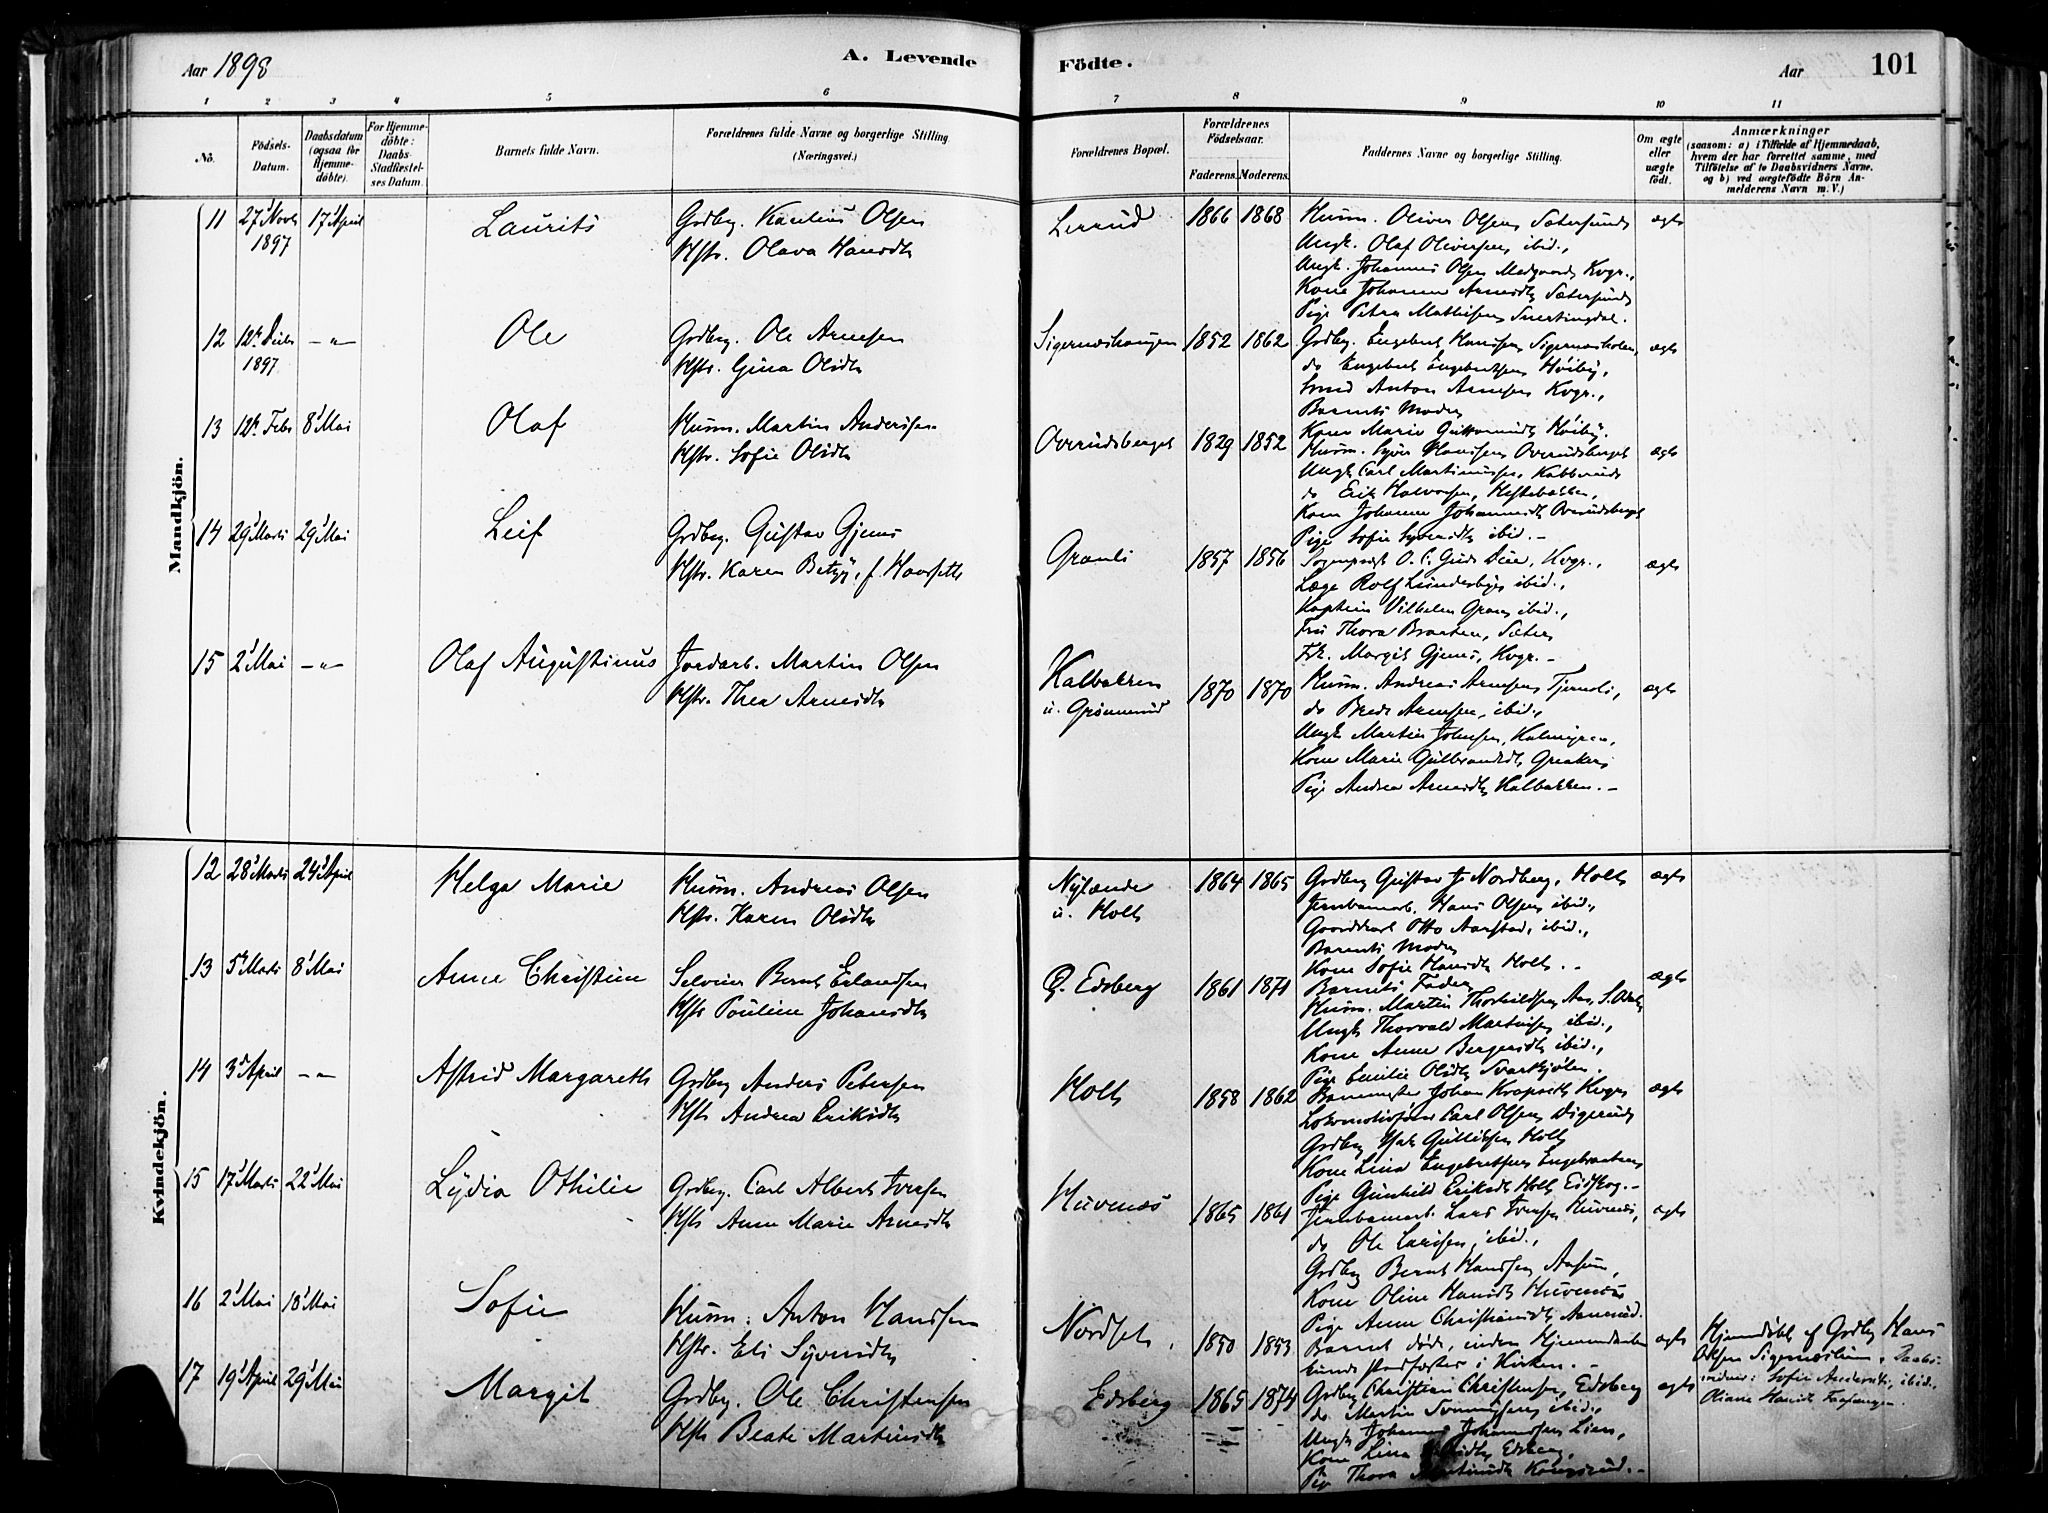 Aar 1898
A. Levende
Födte.
Aar
101
1 2 3 4 5 6 7 8 9 10 11
No.
Födsels-
Datum.
Daabsdatum
(ogsaa for
Hjemme-
döbte).
For Hjemme-
döbte:
Daabs-
Stadfæstel-
ses Datum.
Barnets fulde Navn.
Forældrenes fulde Navne og borgerlige Stilling
(Næringsvei.)
Forældrenes Bopæl.
Forældrenes
Födselsaar.
Faderens. Moderens.
Faddernes Navne og borgerlige Stilling.
Om ægte
eller
uægte
födt.
Anmærkninger
(saasom: a) i Tilfælde af Hjemmedaab,
hvem der har forrettet samme, med
Tilföielse af to Daabsvidners Navne,
og b) ved uægtefödte Börn An-
melderens Navn m. V.)
Mandkjön.
11 27 Novb 1897 17 April Laurits
Grdbg. Karelius Olsen
Hstr. Olava Hansdtr
Lerrud 1866 1868
Husm. Oliver Olsen Sætersund
Ungk. Olaf Oliversen ibid.,
Ungk. Johannes Olsen Kvgr.,
Kone Johanne Arnesdtr Sætersund
Pige Petra Mathisen Snertingdal.
ægte
12 12 Decbr 1897 -"- Ole
Grdbg. Ole Arnesen
Hstr. Gina Olsdtr
Sigernæshaugen 1852 1862
Grdbg. Engebret Hansen Sigernæsholen,
do Engebret Engebretsen Höiby,
Smed Anton Arnesen Kvgr.,
Barnets Moder
Kone Marie Guttormsdtr Höiby.
ægte
13 12 Febr 8 Mai Olaf
Husm. Martin Andersen
Hstr. Sofie Olsdtr
Overudsberget 1829 1852
Husm. Syver Hansen Overudsberget
Ungk Carl Martinussen, Kabberud
do Erik Halvorsen, Hestebakken,
Kone Johanne Johannesdtr Overudsberget
Pige Sofie Syversdtr ibid. -
ægte
14 29 Marts 29 Mai Leif
Grdbg. Gustav Gjems
Hstr. Karen Betzy, f. Hovseth
Granli 1857 1856
Sogneprest O. C. Kvgr.,
Læge Rolf Lundesbye ibid.,
Kaptein Vilhelm Gran ibid.,
Fru Thora Braaten, Sæter
Frk. Margit Gjems, Kvgr. -
ægte
15 2 Mai -"- Olaf Augustinus
Jordarb. Martin Olsen
Hstr. Thea Arnesdtr
Kalbakken
u. Grönnerud 1870 1870
Husm. Andreas Arnesen Tjernsli,
do Brede Arnesen, ibid.,
Ungk Martin Johnsen, Kalmyren,
Kone Marie Gulbrandsdtr Greaker
Pige Andrea Arnesdtr Kalbakken. -
ægte
Kvindekjön.
12 28 Marts 24 April Helga Marie
Husm. Andreas Olsen
Hstr. Karen Olsdtr
Nylænde
u. Holt 1864 1865
Grdbg Gustav J. Nordberg, Holt
Jernbanearb. Hans Olsen ibid.,
Gaarddeel Otto Aarstad, ibid.,
Barnets Moder
Kone Sofie Hansdtr Holt. -
ægte
13 5 Marts 8 Mai Anne Christine
Selveier Bernt Erlandsen
Hstr Pouline Johansdtr
Ö. Edsberg 1861 1871
Barnets Fader
Husm. Martin Thorkildsen Aas, S. Odalen
Ungk Thorvald Martinsen ibid.,
Kone Anne Bergersdtr ibid.,
Pige Emilie Olsdtr Svarthjölen.
ægte
14 3 April -"- Astrid Margareth
Grdbg Anders Petersen
Hstr Andrea Eriksdtr
Holt 1858 1862
Banemester Johan Kvgr
Lokomotivförer Carl Olsen Digerud
Grdbg Isak Gulliksen Holt
Kone Lina Engebretsen Engebraaten
Pige Gunhild Eriksdtr Holt Eidskog. -
ægte
15 17 Marts 22 Mai Lydia Othilie
Grdbg. Carl Albert Iversen
Hstr Anne Marie Arnesdtr
Huvenæs 1865 1861
Jernbanearb. Lars Iversen Huvenæs,
do Ole Larssen, ibid.,
Grdbg Bernt Hansen Aasum,
Kone Oline Hansdtr Huvenæs
Pige Anne Christiansdtr Aamerud.
ægte
16 2 Mai 18 Mai Sofie
Husm. Anton Hansen
Hstr. Eli Syversdtr
Nordset. 1850 1853
Barnet döde, inden Hjemmedaaben
kunde stadfæstes i Kirken. -
ægte
Hjemdöbt af Grdbg Hans
Olsen Sigernæstuen, Daabs-
vidner: Sofie Andersdtr, ibid.,
Oliane Hansdtr
17 19 April 29 Mai Margit
Grdbg. Ole Christensen
Hstr Beate Martinsdtr
Edsberg 1865 1874
Grdbg Christian Christensen, Edsberg
do Martin ibid.,
Ungk Johannes Johannessen Lien,
Kone Lina Edsberg,
Pige Thora Martinsdtr Kongsrud. -
ægte